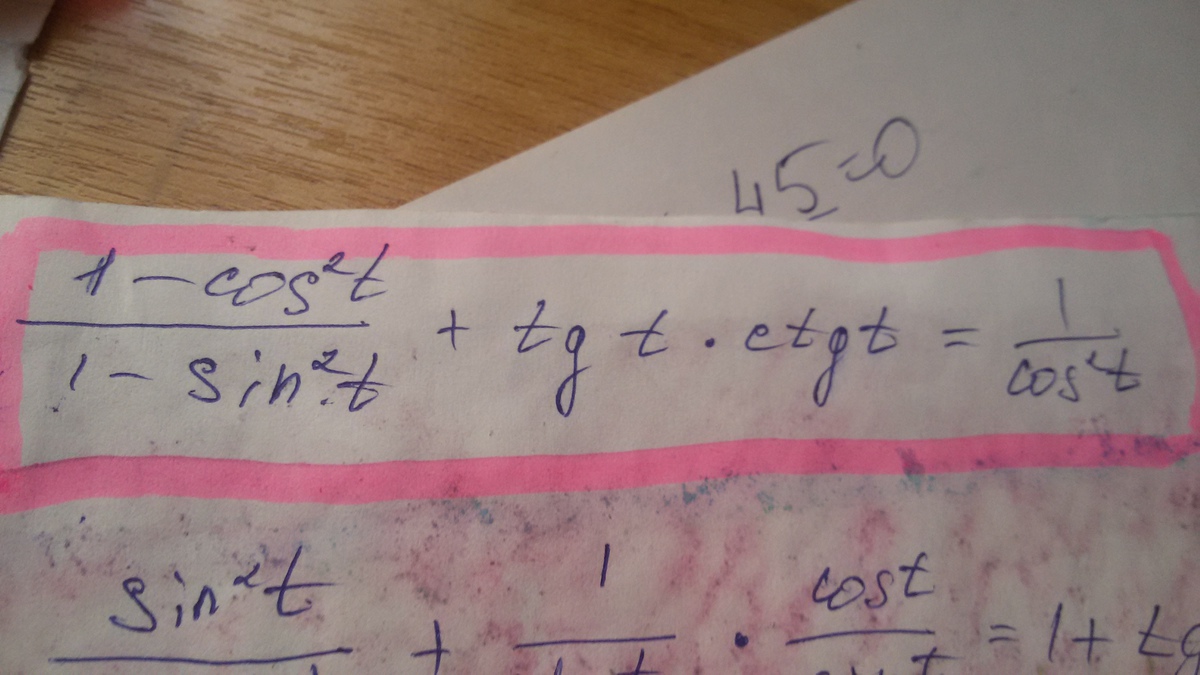 45=0
1-cos²t / 1-sin²t + tg t · ctgt = 1 / cos²t
sin²t + 1 · cost = 1+ tg